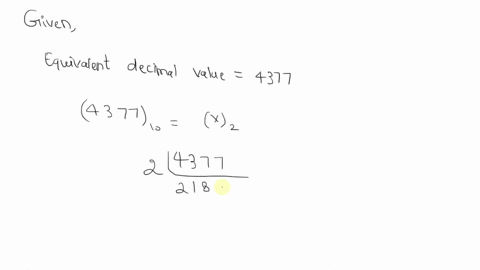 Given,
Equivalent decimal value = 4377
(4377)₁₀ = (x)₂
2 | 4377
218